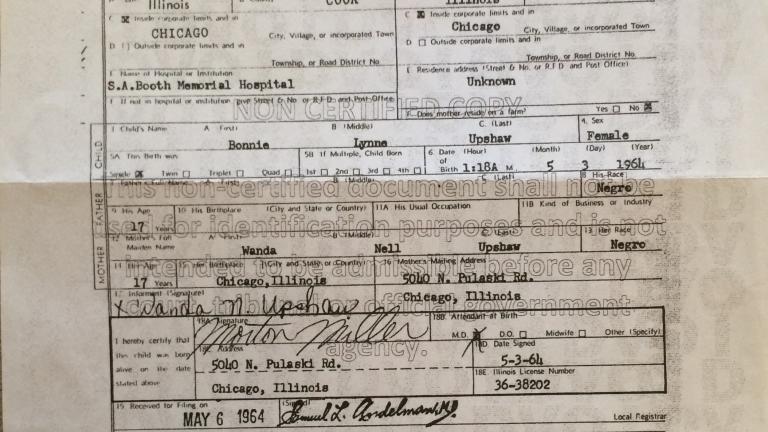 Illinois COOK Illinois
C ☒ Inside corporate limits and in C ☒ Inside corporate limits and in
CHICAGO City, Village, or incorporated Town Chicago City, Village, or incorporated Town
D ☐ Outside corporate limits and in D ☐ Outside corporate limits and in
Township, or Road District No. Township, or Road District No.
E Name of Hospital or Institution E Residence address (Street & No. or R.F.D. and Post Office)
S.A.Booth Memorial Hospital Unknown
F If not in hospital or institution give Street & No. or R.F.D. and Post Office
NON CERTIFIED COPY
F. Does mother reside on a farm? Yes ☐ No ☒
3 Child's Name A (First) B (Middle) C. (Last) 4. Sex
Bonnie Lynne Upshaw Female
CHILD
5A This Birth was 5B If Multiple, Child Born 6. Date of Birth (Hour) (Month) (Day) (Year)
Single ☒ Twin ☐ Triplet ☐ Quad ☐ 1st ☐ 2nd ☐ 3rd ☐ 4th ☐ 1:18A M. 5 3 1964
Father's Full Name A (First) B (Middle) C (Last) 8 His Race
Negro
This non-certified document shall not be
FATHER
9 His Age 10 His Birthplace (City and State or Country) 11A His Usual Occupation 11B Kind of Business or Industry
17 Years
used for identification purposes and is not
12 Mother's Full Maiden Name A (First) B (Middle) C (Last) 13 Her Race
Wanda Nell Upshaw Negro
MOTHER
intended to be admissible before any
14 Her Age 15 Her Birthplace (City and State or Country) 16 Mother's Mailing Address
17 Years Chicago,Illinois 5040 N. Pulaski Rd.
Chicago, Illinois
17 Informant (Signature)
X Wanda N. Upshaw
official government
agency.
18A Signature 18B Attendant at Birth
Morton Miller M.D. ☒ D.O. ☐ Midwife ☐ Other (Specify)
I hereby certify that this child was born alive on the date stated above
18C Address 18D Date Signed
5040 N. Pulaski Rd. 5-3-64
18E Illinois License Number
Chicago, Illinois 36-38202
19 Received for Filing on (Signed)
MAY 6 1964 Samuel L. Andelman, M.D. Local Registrar